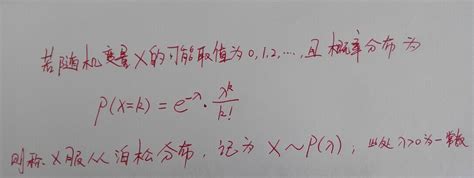 若随机变量X的可能取值为0,1,2,…,且概率分布为
P(X=k)=e^{-λ}·\frac{λ^k}{k!}
则称X服从泊松分布,记为X~P(λ),此处λ>0为一常数